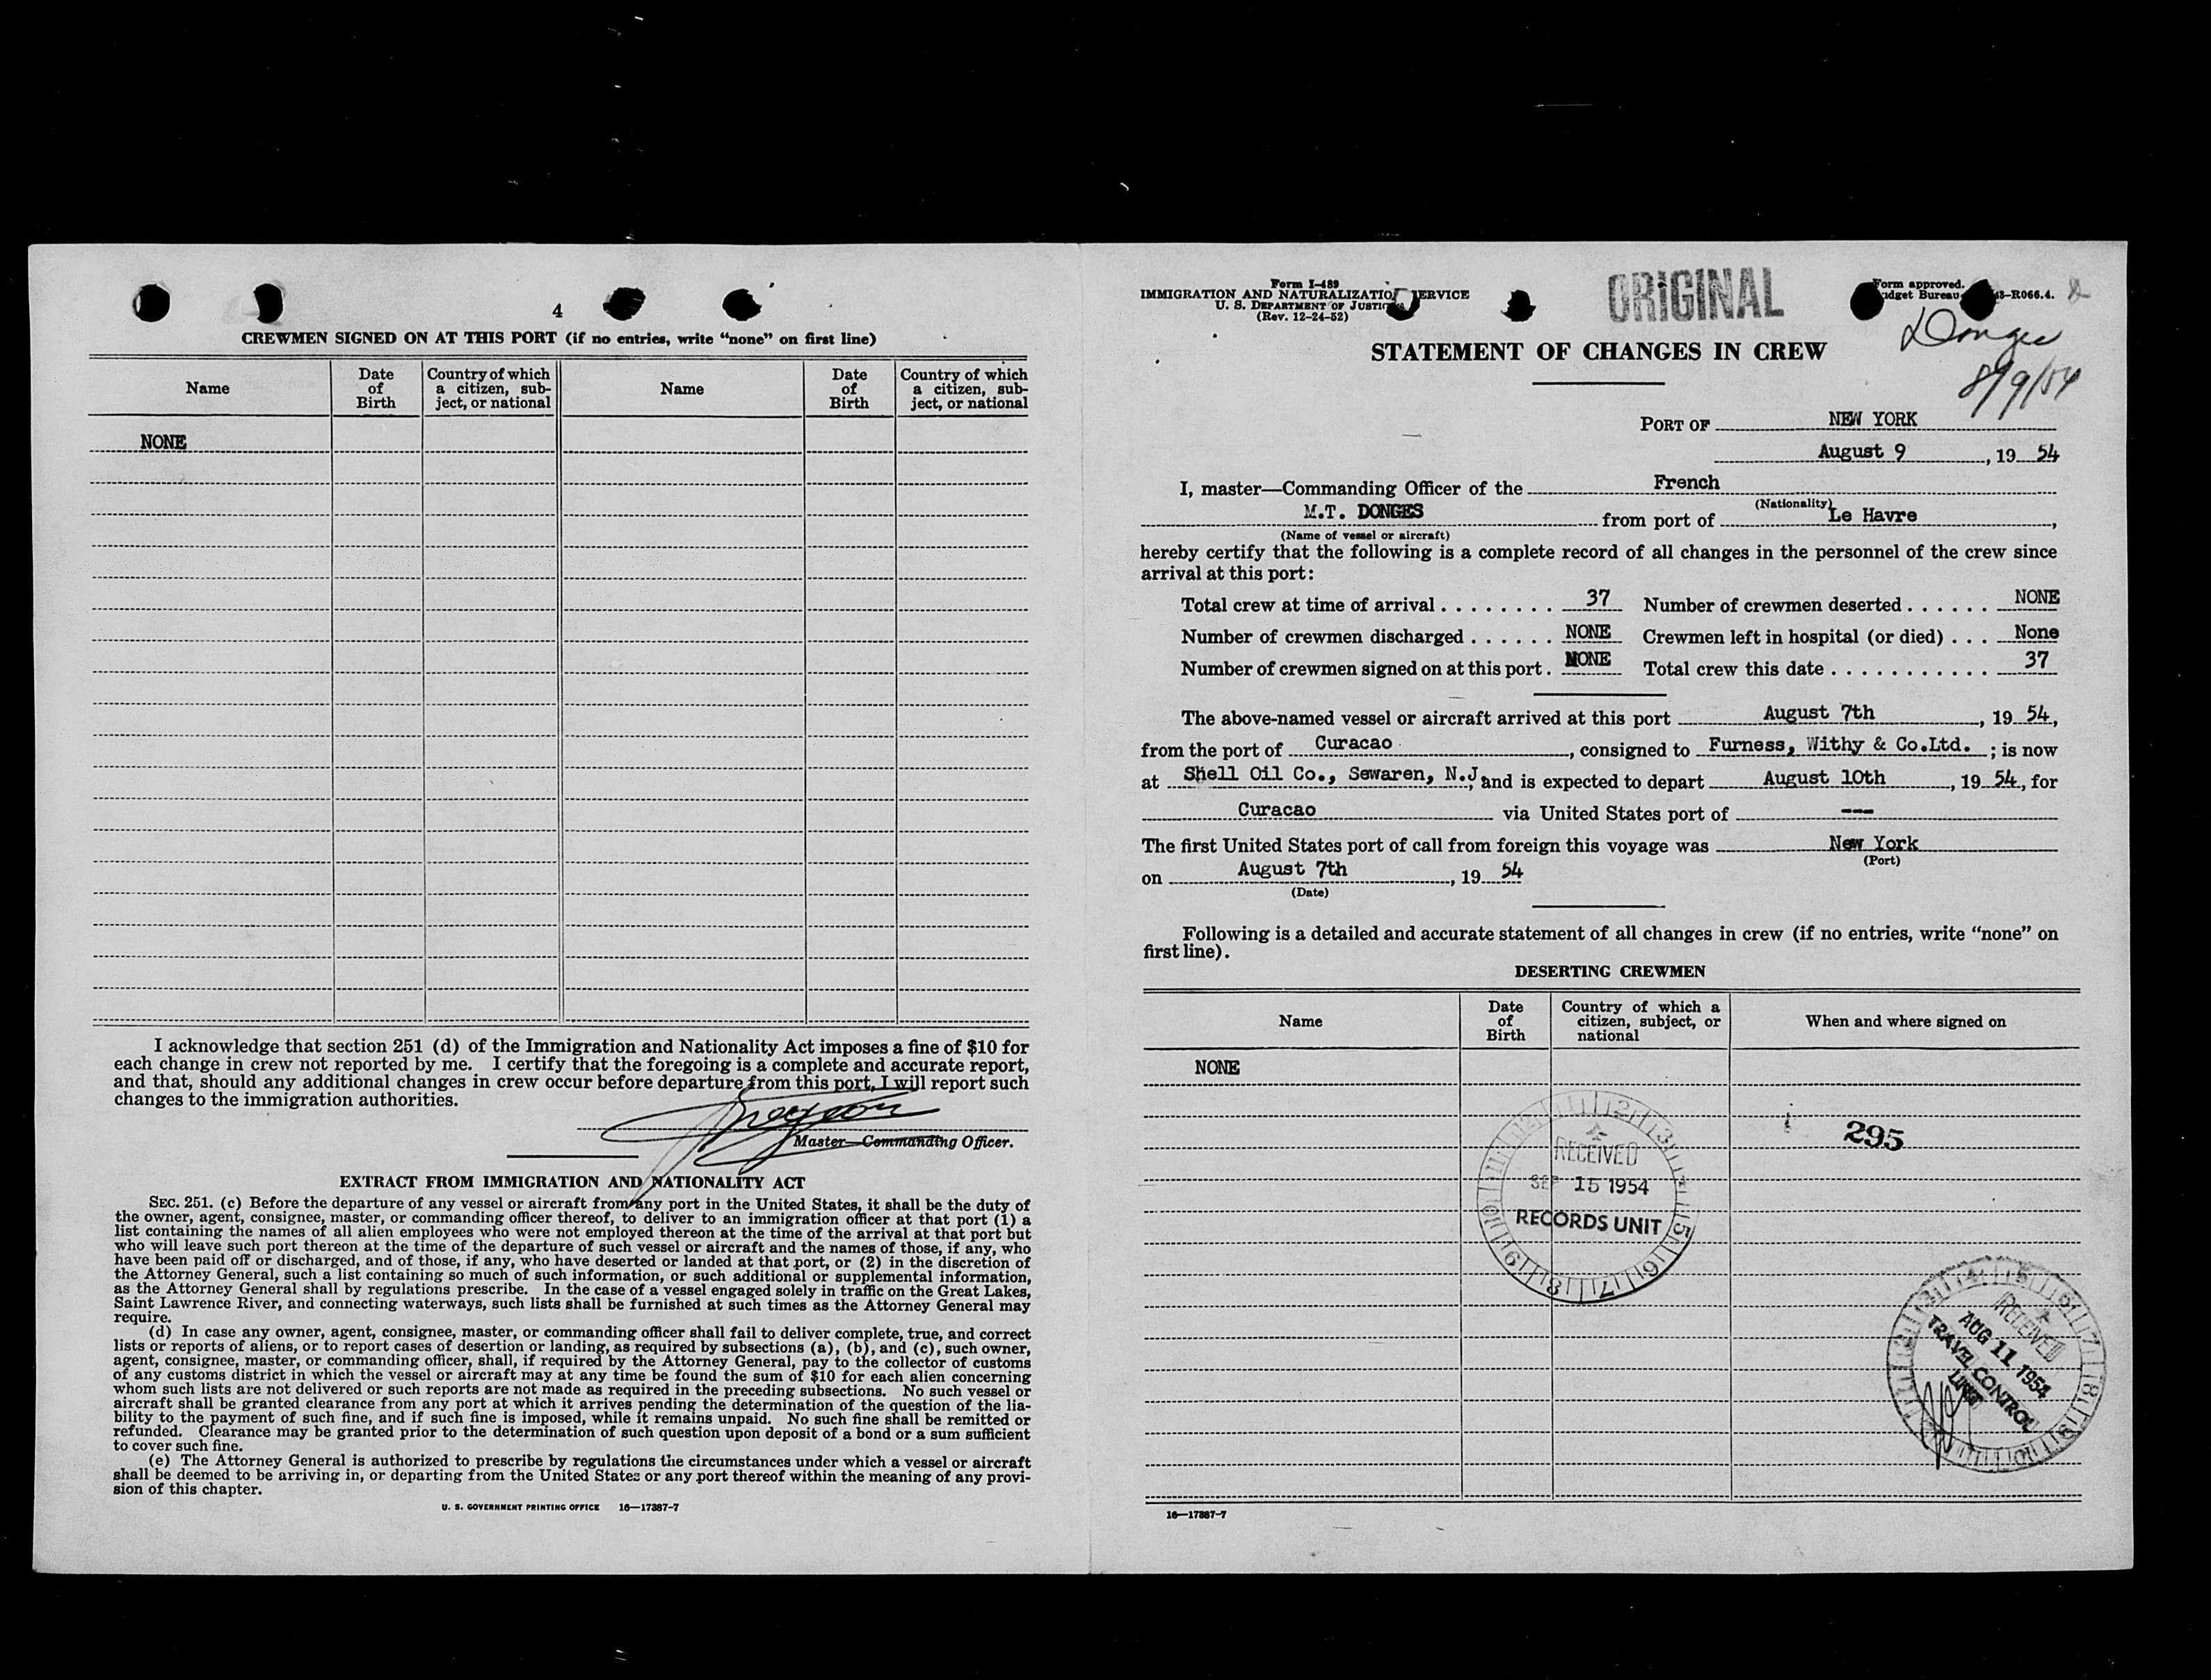 4
CREWMEN SIGNED ON AT THIS PORT (if no entries, write “none” on first line)
Name Date of Birth Country of which a citizen, sub-ject, or national Name Date of Birth Country of which a citizen, sub-ject, or national
NONE
I acknowledge that section 251 (d) of the Immigration and Nationality Act imposes a fine of $10 for
each change in crew not reported by me. I certify that the foregoing is a complete and accurate report,
and that, should any additional changes in crew occur before departure from this port, I will report such
changes to the immigration authorities.
Master—Commanding Officer.
EXTRACT FROM IMMIGRATION AND NATIONALITY ACT
SEC. 251. (c) Before the departure of any vessel or aircraft from any port in the United States, it shall be the duty of
the owner, agent, consignee, master, or commanding officer thereof, to deliver to an immigration officer at that port (1) a
list containing the names of all alien employees who were not employed thereon at the time of the arrival at that port but
who will leave such port thereon at the time of the departure of such vessel or aircraft and the names of those, if any, who
have been paid off or discharged, and of those, if any, who have deserted or landed at that port, or (2) in the discretion of
the Attorney General, such a list containing so much of such information, or such additional or supplemental information,
as the Attorney General shall by regulations prescribe. In the case of a vessel engaged solely in traffic on the Great Lakes,
Saint Lawrence River, and connecting waterways, such lists shall be furnished at such times as the Attorney General may
require.
(d) In case any owner, agent, consignee, master, or commanding officer shall fail to deliver complete, true, and correct
lists or reports of aliens, or to report cases of desertion or landing, as required by subsections (a), (b), and (c), such owner,
agent, consignee, master, or commanding officer, shall, if required by the Attorney General, pay to the collector of customs
of any customs district in which the vessel or aircraft may at any time be found the sum of $10 for each alien concerning
whom such lists are not delivered or such reports are not made as required in the preceding subsections. No such vessel or
aircraft shall be granted clearance from any port at which it arrives pending the determination of the question of the lia-
bility to the payment of such fine, and if such fine is imposed, while it remains unpaid. No such fine shall be remitted or
refunded. Clearance may be granted prior to the determination of such question upon deposit of a bond or a sum sufficient
to cover such fine.
(e) The Attorney General is authorized to prescribe by regulations the circumstances under which a vessel or aircraft
shall be deemed to be arriving in, or departing from the United States or any port thereof within the meaning of any provi-
sion of this chapter.
U. S. GOVERNMENT PRINTING OFFICE 16—17387-7
Form I-489
IMMIGRATION AND NATURALIZATIO ERVICE
U. S. DEPARTMENT OF JUSTIC
(Rev. 12-24-52)
ORIGINAL
Form approved.
dget Bureau 43-R066.4.
Donges
8/9/54
STATEMENT OF CHANGES IN CREW
PORT OF NEW YORK
August 9, 19 54
I, master—Commanding Officer of the French
(Nationality)
M.T. DONGES from port of Le Havre,
(Name of vessel or aircraft)
hereby certify that the following is a complete record of all changes in the personnel of the crew since
arrival at this port:
Total crew at time of arrival . . . . . . . . 37 Number of crewmen deserted . . . . . . NONE
Number of crewmen discharged . . . . . . NONE Crewmen left in hospital (or died) . . . None
Number of crewmen signed on at this port . NONE Total crew this date . . . . . . . . . . . 37
The above-named vessel or aircraft arrived at this port August 7th, 19 54,
from the port of Curacao, consigned to Furness, Withy & Co.Ltd. ; is now
at Shell Oil Co., Sewaren, N.J, and is expected to depart August 10th, 19 54, for
Curacao via United States port of ---
The first United States port of call from foreign this voyage was New York
(Port)
on August 7th, 19 54
(Date)
Following is a detailed and accurate statement of all changes in crew (if no entries, write “none” on
first line).
DESERTING CREWMEN
Name Date of Birth Country of which a citizen, subject, or national When and where signed on
NONE
295
RECEIVED
SEP 15 1954
RECORDS UNIT
RECEIVED
AUG 11 1954
TRAVEL CONTROL
UNIT
16—17387-7